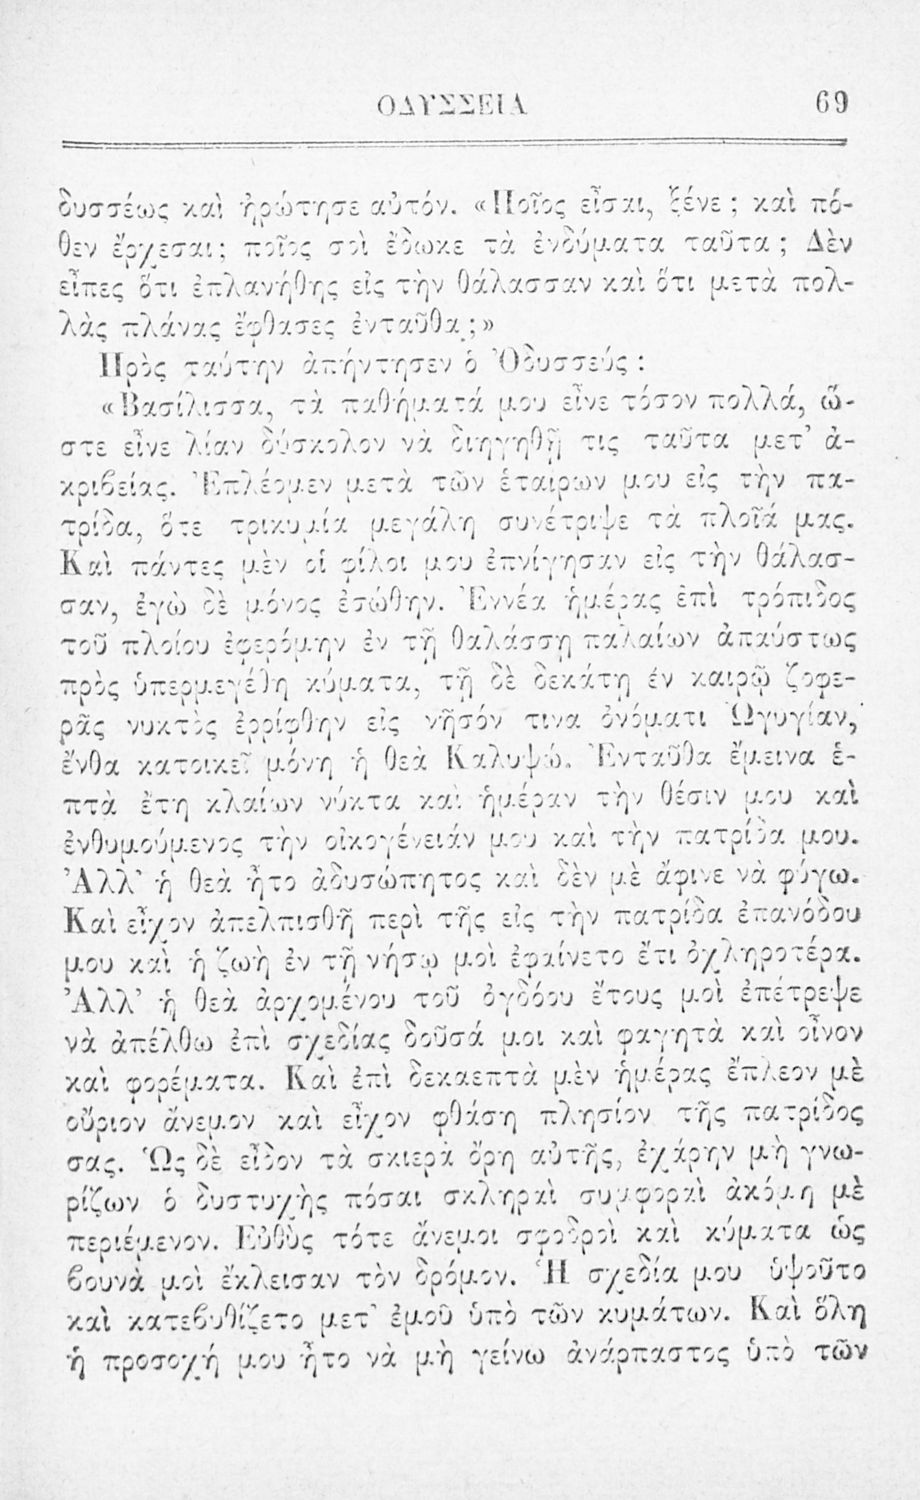 ΟΔΥΣΣΕΙΑ 69
δυσσέως καὶ ἠρώτησε αὐτόν. «Ποῖος εἶσαι, ξένε; καὶ πό-
θεν ἔρχεσαι; ποῖος σοὶ ἔδωκε τὰ ἐνδύματα ταῦτα; Δὲν
εἶπες ὅτι ἐπλανήθης εἰς τὴν θάλασσαν καὶ ὅτι μετὰ πολ-
λὰς πλάνας ἔφθασες ἐνταῦθα;»
Πρὸς ταύτην ἀπήντησεν ὁ Ὀδυσσεύς:
«Βασίλισσα, τὰ παθήματά μου εἶνε τόσον πολλά, ὥ-
στε εἶνε λίαν δύσκολον νὰ διηγηθῇ τις ταῦτα μετ’ ἀ-
κριβείας. Ἐπλέομεν μετὰ τῶν ἑταίρων μου εἰς τὴν πα-
τρίδα, ὅτε τρικυμία μεγάλη συνέτριψε τὰ πλοῖά μας.
Καὶ πάντες μὲν οἱ φίλοι μου ἐπνίγησαν εἰς τὴν θάλασ-
σαν, ἐγὼ δὲ μόνος ἐσώθην. Ἐννέα ἡμέρας ἐπὶ τρόπιδος
τοῦ πλοίου ἐφερόμην ἐν τῇ θαλάσσῃ παλαίων ἀπαύστως
πρὸς ὑπερμεγέθη κύματα, τῇ δὲ δεκάτῃ ἐν καιρῷ ζοφε-
ρᾶς νυκτὸς ἐρρίφθην εἰς νῆσόν τινα ὀνόματι Ὠγυγίαν,
ἔνθα κατοικεῖ μόνη ἡ θεὰ Καλυψώ. Ἐνταῦθα ἔμεινα ἑ-
πτὰ ἔτη κλαίων νύκτα καὶ ἡμέραν τὴν θέσιν μου καὶ
ἐνθυμούμενος τὴν οἰκογένειάν μου καὶ τὴν πατρίδα μου.
Ἀλλ’ ἡ θεὰ ἦτο ἀδυσώπητος καὶ δὲν μὲ ἄφινε νὰ φύγω.
Καὶ εἶχον ἀπελπισθῆ περὶ τῆς εἰς τὴν πατρίδα ἐπανόδου
μου καὶ ἡ ζωὴ ἐν τῇ νήσῳ μοὶ ἐφαίνετο ἔτι ὀχληροτέρα.
Ἀλλ’ ἡ θεὰ ἀρχομένου τοῦ ὀγδόου ἔτους μοὶ ἐπέτρεψε
νὰ ἀπέλθω ἐπὶ σχεδίας δοῦσά μοι καὶ φαγητὰ καὶ οἶνον
καὶ φορέματα. Καὶ ἐπὶ δεκαεπτὰ μὲν ἡμέρας ἔπλεον μὲ
οὔριον ἄνεμον καὶ εἶχον φθάση πλησίον τῆς πατρίδος
σας. Ὡς δὲ εἶδον τὰ σκιερὰ ὄρη αὐτῆς, ἐχάρην μὴ γνω-
ρίζων ὁ δυστυχὴς πόσαι σκληραὶ συμφοραὶ ἀκόμη μὲ
περιέμενον. Εὐθὺς τότε ἄνεμοι σφοδροὶ καὶ κύματα ὡς
βουνὰ μοὶ ἔκλεισαν τὸν δρόμον. Ἡ σχεδία μου ὑψοῦτο
καὶ κατεβυθίζετο μετ’ ἐμοῦ ὑπὸ τῶν κυμάτων. Καὶ ὅλη
ἡ προσοχή μου ἦτο νὰ μὴ γείνω ἀνάρπαστος ὑπὸ τῶν